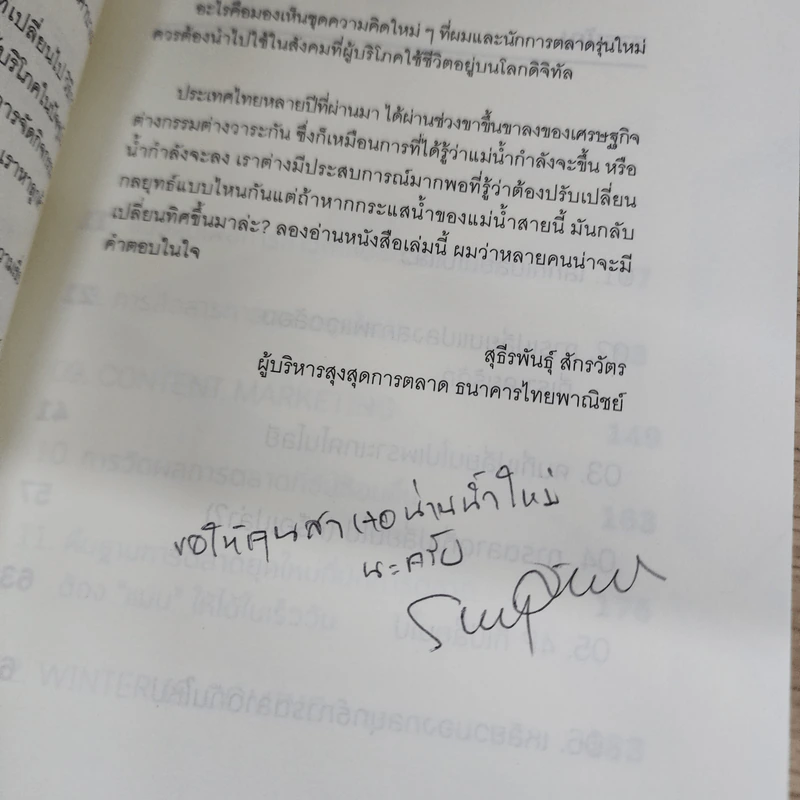 อะไรคือมองเห็นชุดความคิดใหม่ ๆ ที่ผมและนักการตลาดรุ่นใหม่
ควรต้องนำไปใช้ในสังคมที่ผู้บริโภคใช้ชีวิตอยู่บนโลกดิจิทัล
ประเทศไทยหลายปีที่ผ่านมา ได้ผ่านช่วงขาขึ้นขาลงของเศรษฐกิจ
ต่างกรรมต่างวาระกัน ซึ่งก็เหมือนการที่ได้รู้ว่าแม่น้ำกำลังจะขึ้น หรือ
น้ำกำลังจะลง เราต่างมีประสบการณ์มากพอที่รู้ว่าต้องปรับเปลี่ยน
กลยุทธ์แบบไหนกันแต่ถ้าหากกระแสน้ำของแม่น้ำสายนี้ มันกลับ
เปลี่ยนทิศขึ้นมาล่ะ? ลองอ่านหนังสือเล่มนี้ ผมว่าหลายคนน่าจะมี
คำตอบในใจ
สุธีรพันธุ์ สักรวัตร
ผู้บริหารสูงสุดการตลาด ธนาคารไทยพาณิชย์
ขอให้ค้นหา เจอ น่านน้ำใหม่
นะครับ